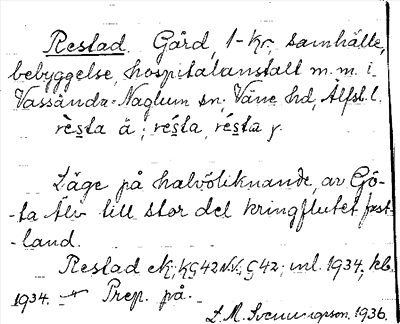 Restad. Gård, 1-Kr, samhälle,
bebyggelse, hospitalanstalt m.m. i
Vassända-Naglum sn, Väne hd, Älfsb. l.
rèsta å; résta, résta y.
Läge på halvöliknande, av Gö-
-ta Älv till stor del kringflutet fast-
-land.
Restad ek; KG42 N.V., G42; ml. 1934, kb.
1934. Prep. på.
L. M. Svenungsson. 1936.